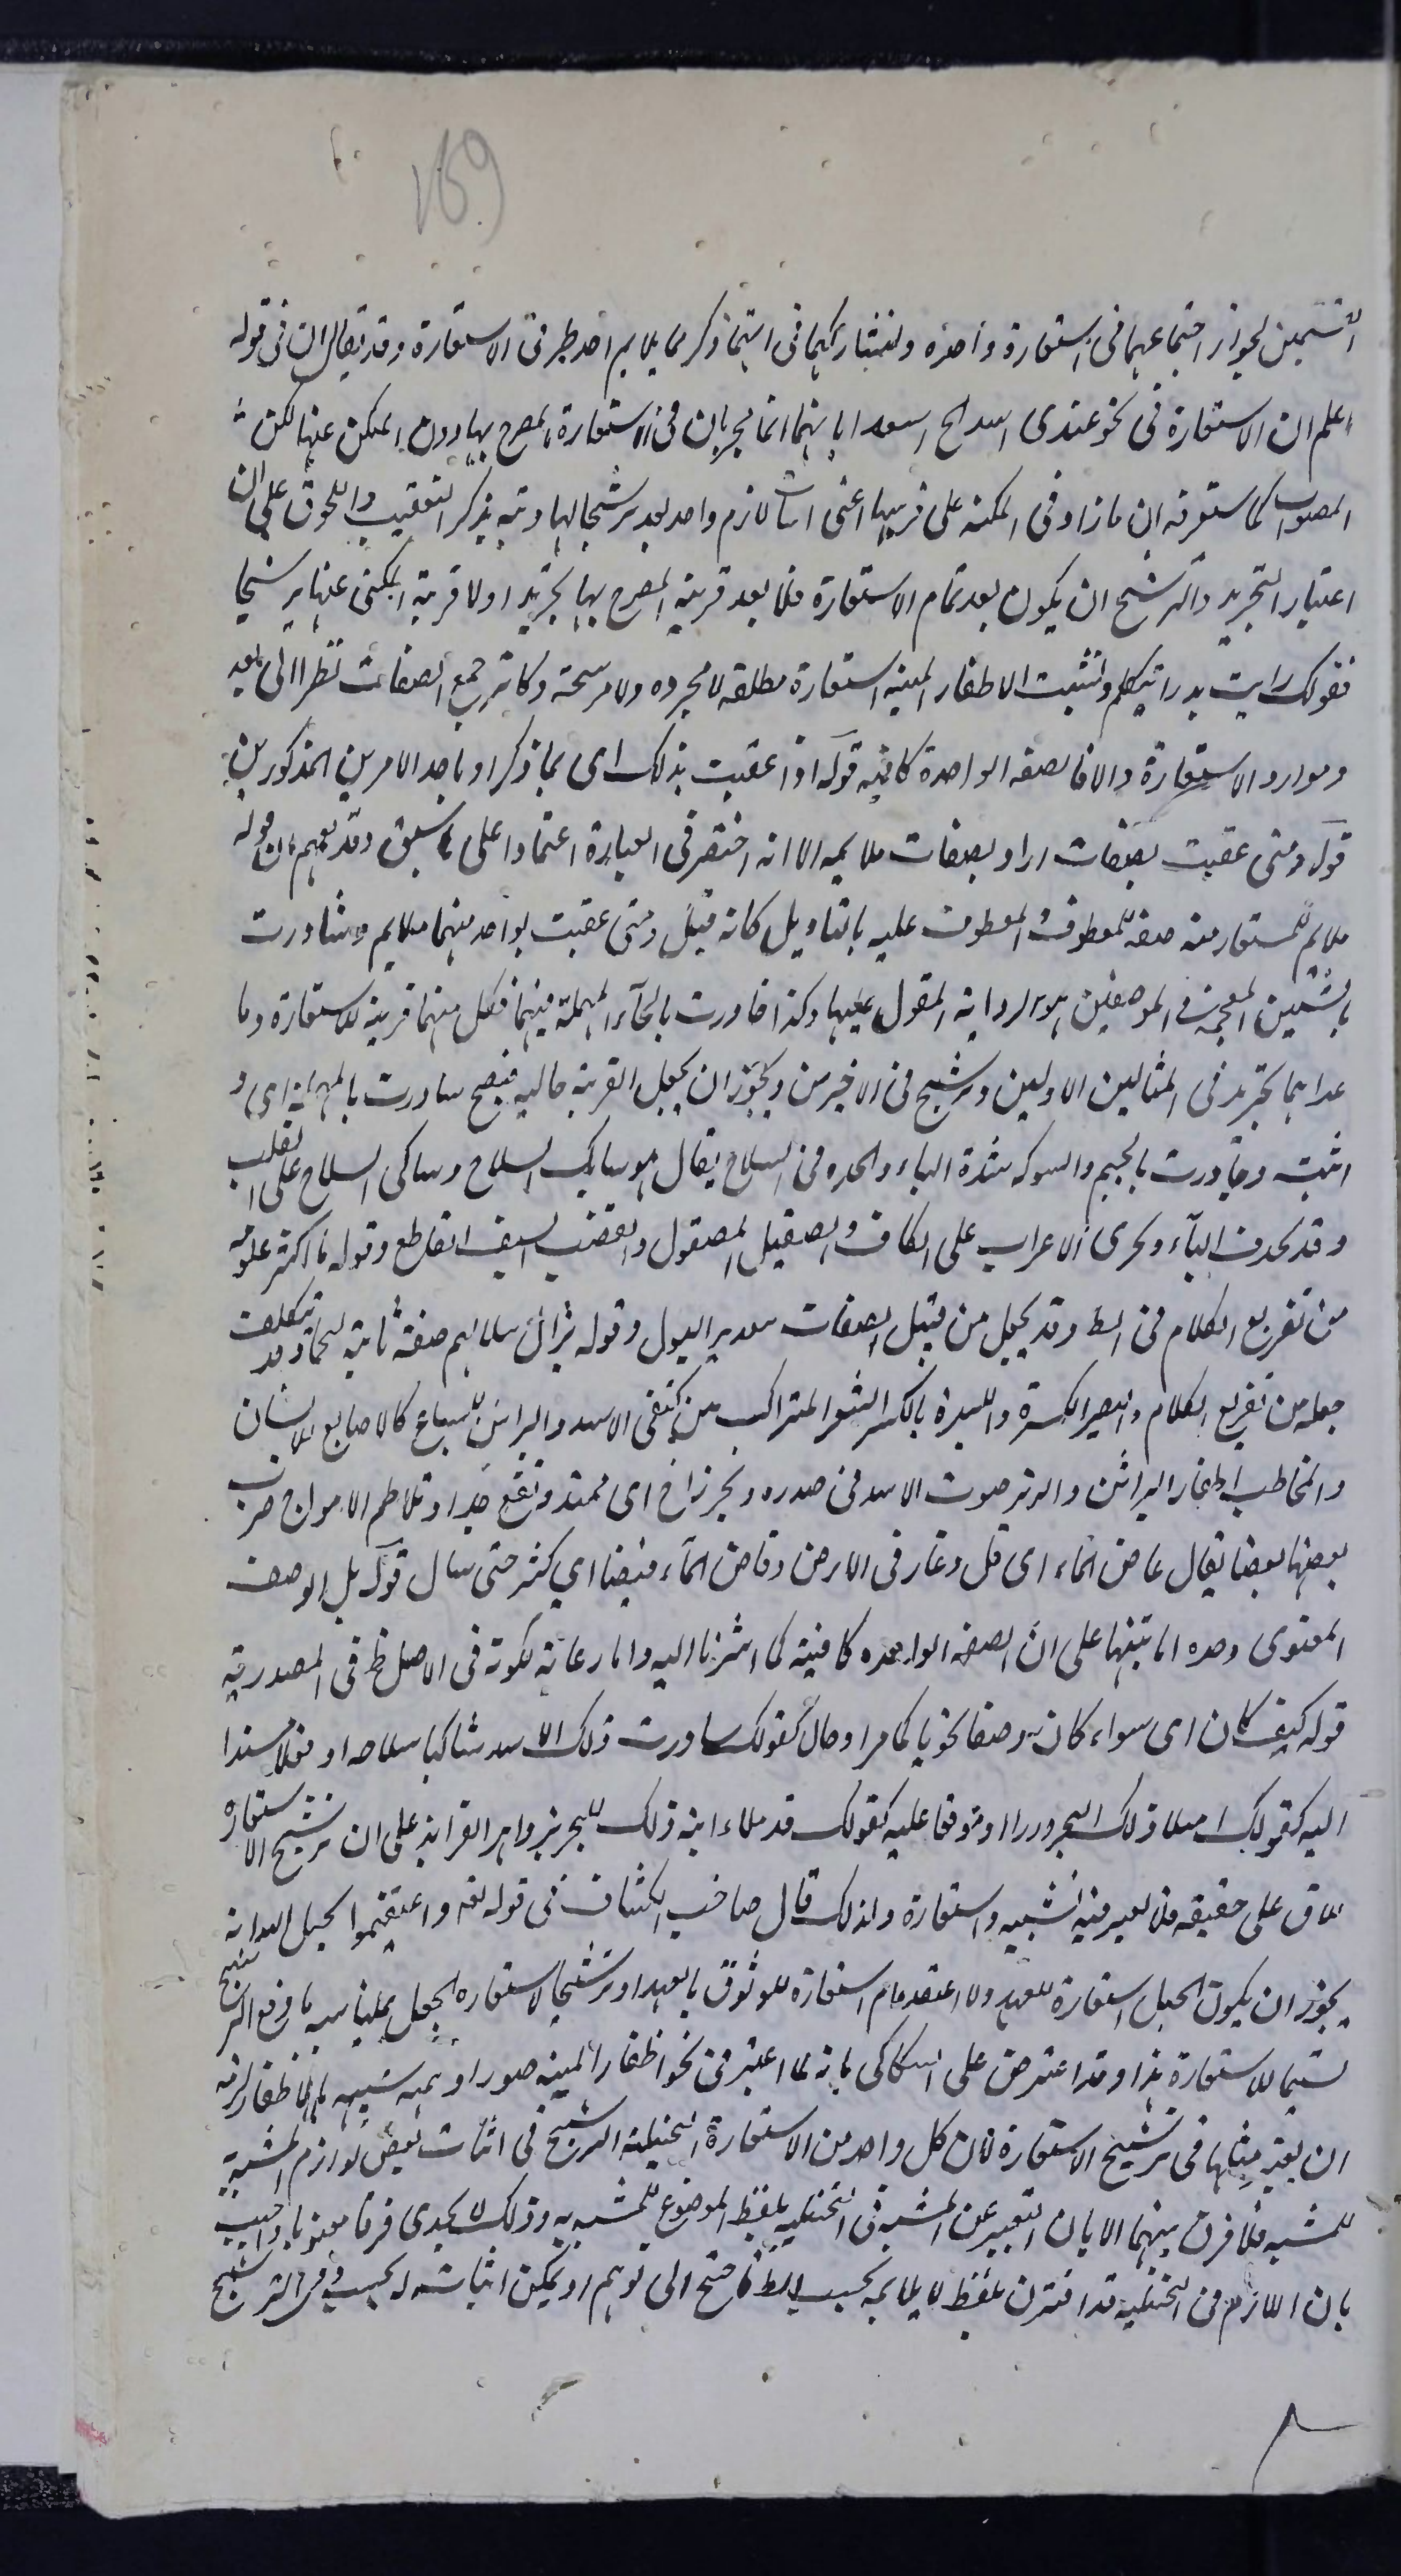 169
القسمين لجواز اجتماعهما في استعارة واحدة ولتشاركهما في انهما ذكر ما يلايم احد طرفي الاستعارة وقد يقال ان في قوله
اعلم ان الاستعارة في نحو عندي اسد الخ اسعد ابا بانهما انما يجريان في الاستعارة المصرح بها دون المكنى عنها لكن
الصواب كما ستعرفه ان ما زاد في المكنية على قرينتها اعني اثبات لازم واحد يعد ترشيحا لها ونبه بذكر التعقيب واللحوق على ان
اعتبار التجريد والترشيح ان يكون بعد تمام الاستعارة فلا يعد قرينة المصرح بها تجريدا ولا قرينة المكنى عنها ترشيحا
فقولك رايت بدرا يتكلم ونشبت الاظفار المنية استعارة مطلقة لا مجردة ولا مرشحة وكانه جمع الصفات نظرا الى تعدد
وموارد الاستعارة والا فالصفة الواحدة كافية قوله اذا عقبت بذلك اي بما ذكر او باحد الامرين المذكورين
قوله ومتى عقبت بصفات اراد بصفات ملايمة الا انه اختصر في العبارة اعتمادا على ما سبق وقد يفهم ان قوله
ملايم للمستعار منه صفة للمعطوف والمعطوف عليه بالتاويل كانه قيل ومتى عقبت بواحد منهما ملايم وشاورت
بالشين المعجمة في الموضعين هو الرواية المقول عليها وكذا حاورت بالحاء المهملة فيهما فكل منهما قرينة للاستعارة وما
عداهما تجريد في المثالين الاولين وترشيح في الاخيرين ويجوز ان يجعل القرينة حالية فيصح ساورت بالمهملة اي و
اثبت وجاورت بالجيم والشوكة شدة الباء والحدة في السلاح يقال هو شايك السلاح وشاكي السلاح على القلب
وقد يحذف الياء ويجري الاعراب على الكاف والصقيل المصقول والقضب السيف القاطع وقوله ما اكثر علومه
من تفريع الكلام في الط وقد يجعل من قبيل الصفات بتقدير القول وقوله بزائر سلاليم صفة ثانية لبحار وقد تكلف
جعله من تفريع الكلام والهصر الكسرة واللبدة بالكسر الشعر المتراكب بين كتفي الاسد والبراثن للسباع كالاصابع للانسان
والمخاطب اظفار البراثن والزئر صوت الاسد في صدره وبحر زاخر اي ممتد مرتفع جدا وتلاطم الامواج ضرب
بعضها بعضا يقال غاض الماء اي قل وغار في الارض وفاض الماء فيضا اي كثر حتى سال قوله بل الوصف
المعنوي وحده اما تنبيها على ان الصفة الواحدة كافية كما اشرنا اليه واما رعاية لكونه في الاصل ظ في المصدرية
قوله كيف كان اي سواء كان وصفا نحويا كما مر او حالا كقولك ساورت ذلك الاسد شاكيا سلاحه او فعلا مسندا
اليه كقولك امتلا ذلك البحر درا او موقعا عليه كقولك قد ملاء الله ذلك البحر بزواهر الفرائد على ان ترشيح الاستعارة
باق على حقيقته فلا يعتبر فيه تشبيه واستعارة ولذلك قال صاحب الكشاف في قوله تعالى واعتصموا بحبل الله انه
يجوز ان يكون الحبل استعارة للعهد والاعتصام استعارة للوثوق بالعهد او ترشيحا لاستعارة الحبل بما يناسبه فاوقع الترشيح
قسيما للاستعارة هذا وقد اعترض على السكاكي بانه لما اعتبر في نحو اظفار المنية صورة وهمية شبيهة بالاظفار لزمه
ان يعتبر مثلها في ترشيح الاستعارة لان كل واحد من الاستعارة التخييلية والترشيح في اثبات بعض لوازم المشبه به
للمشبه فلا فرق بينهما الا بان التعبير عن المشبه في التخييلية بلفظ الموضوع للمشبه به وذلك لا يجدي فرقا معنويا واجيب
بان اللازم في التخييلية قد اقترن بلفظ لا يلايمه بحسب الط فاحتيج الى توهم امر يمكن اثباته له بحسب وفي الترشيح